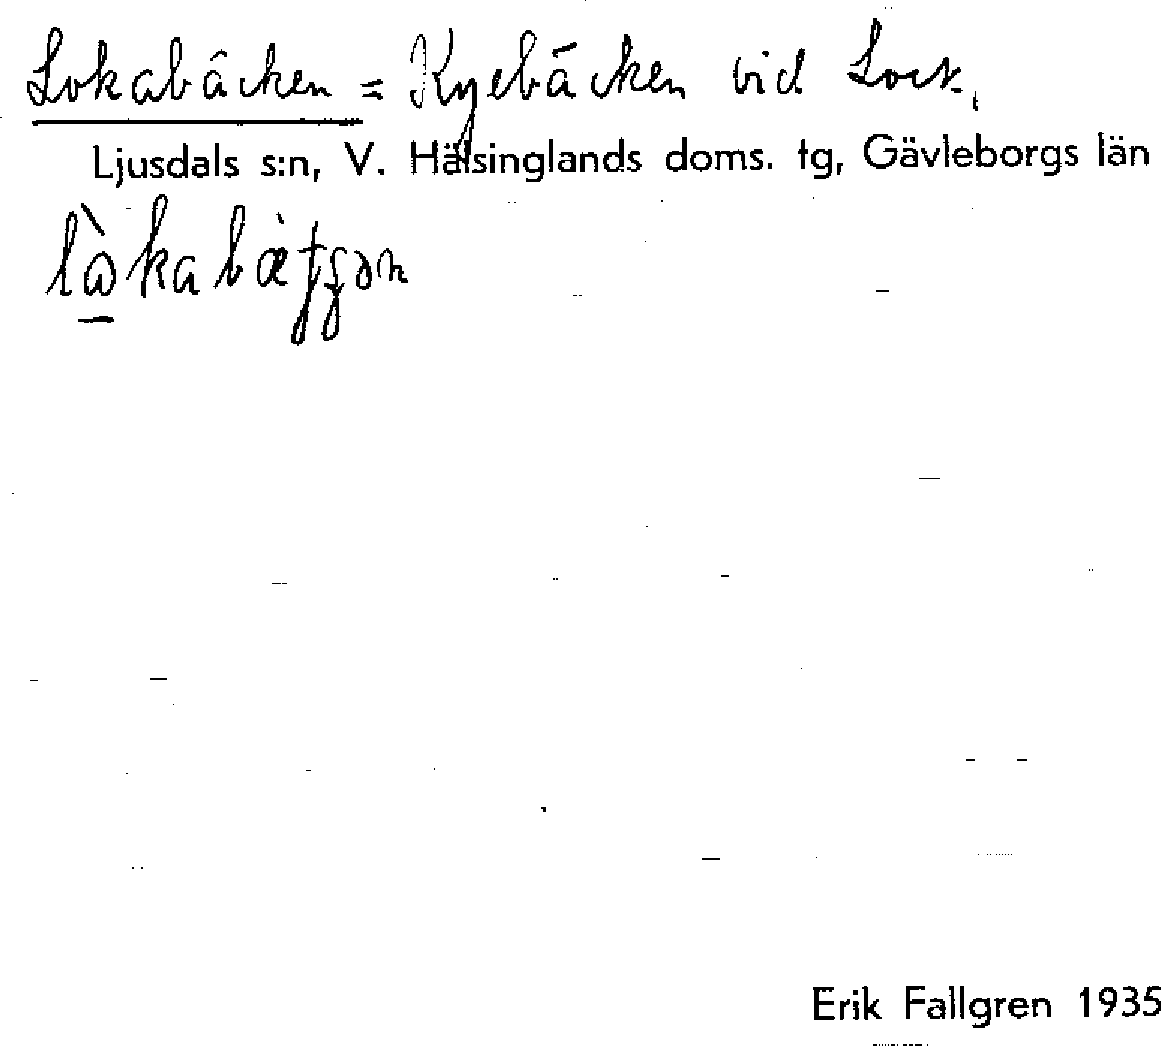 Lokabäcken = Kyebäcken vid Lock,
Ljusdals s:n, V. Hälsinglands doms. tg, Gävleborgs län
Erik Fallgren 1935